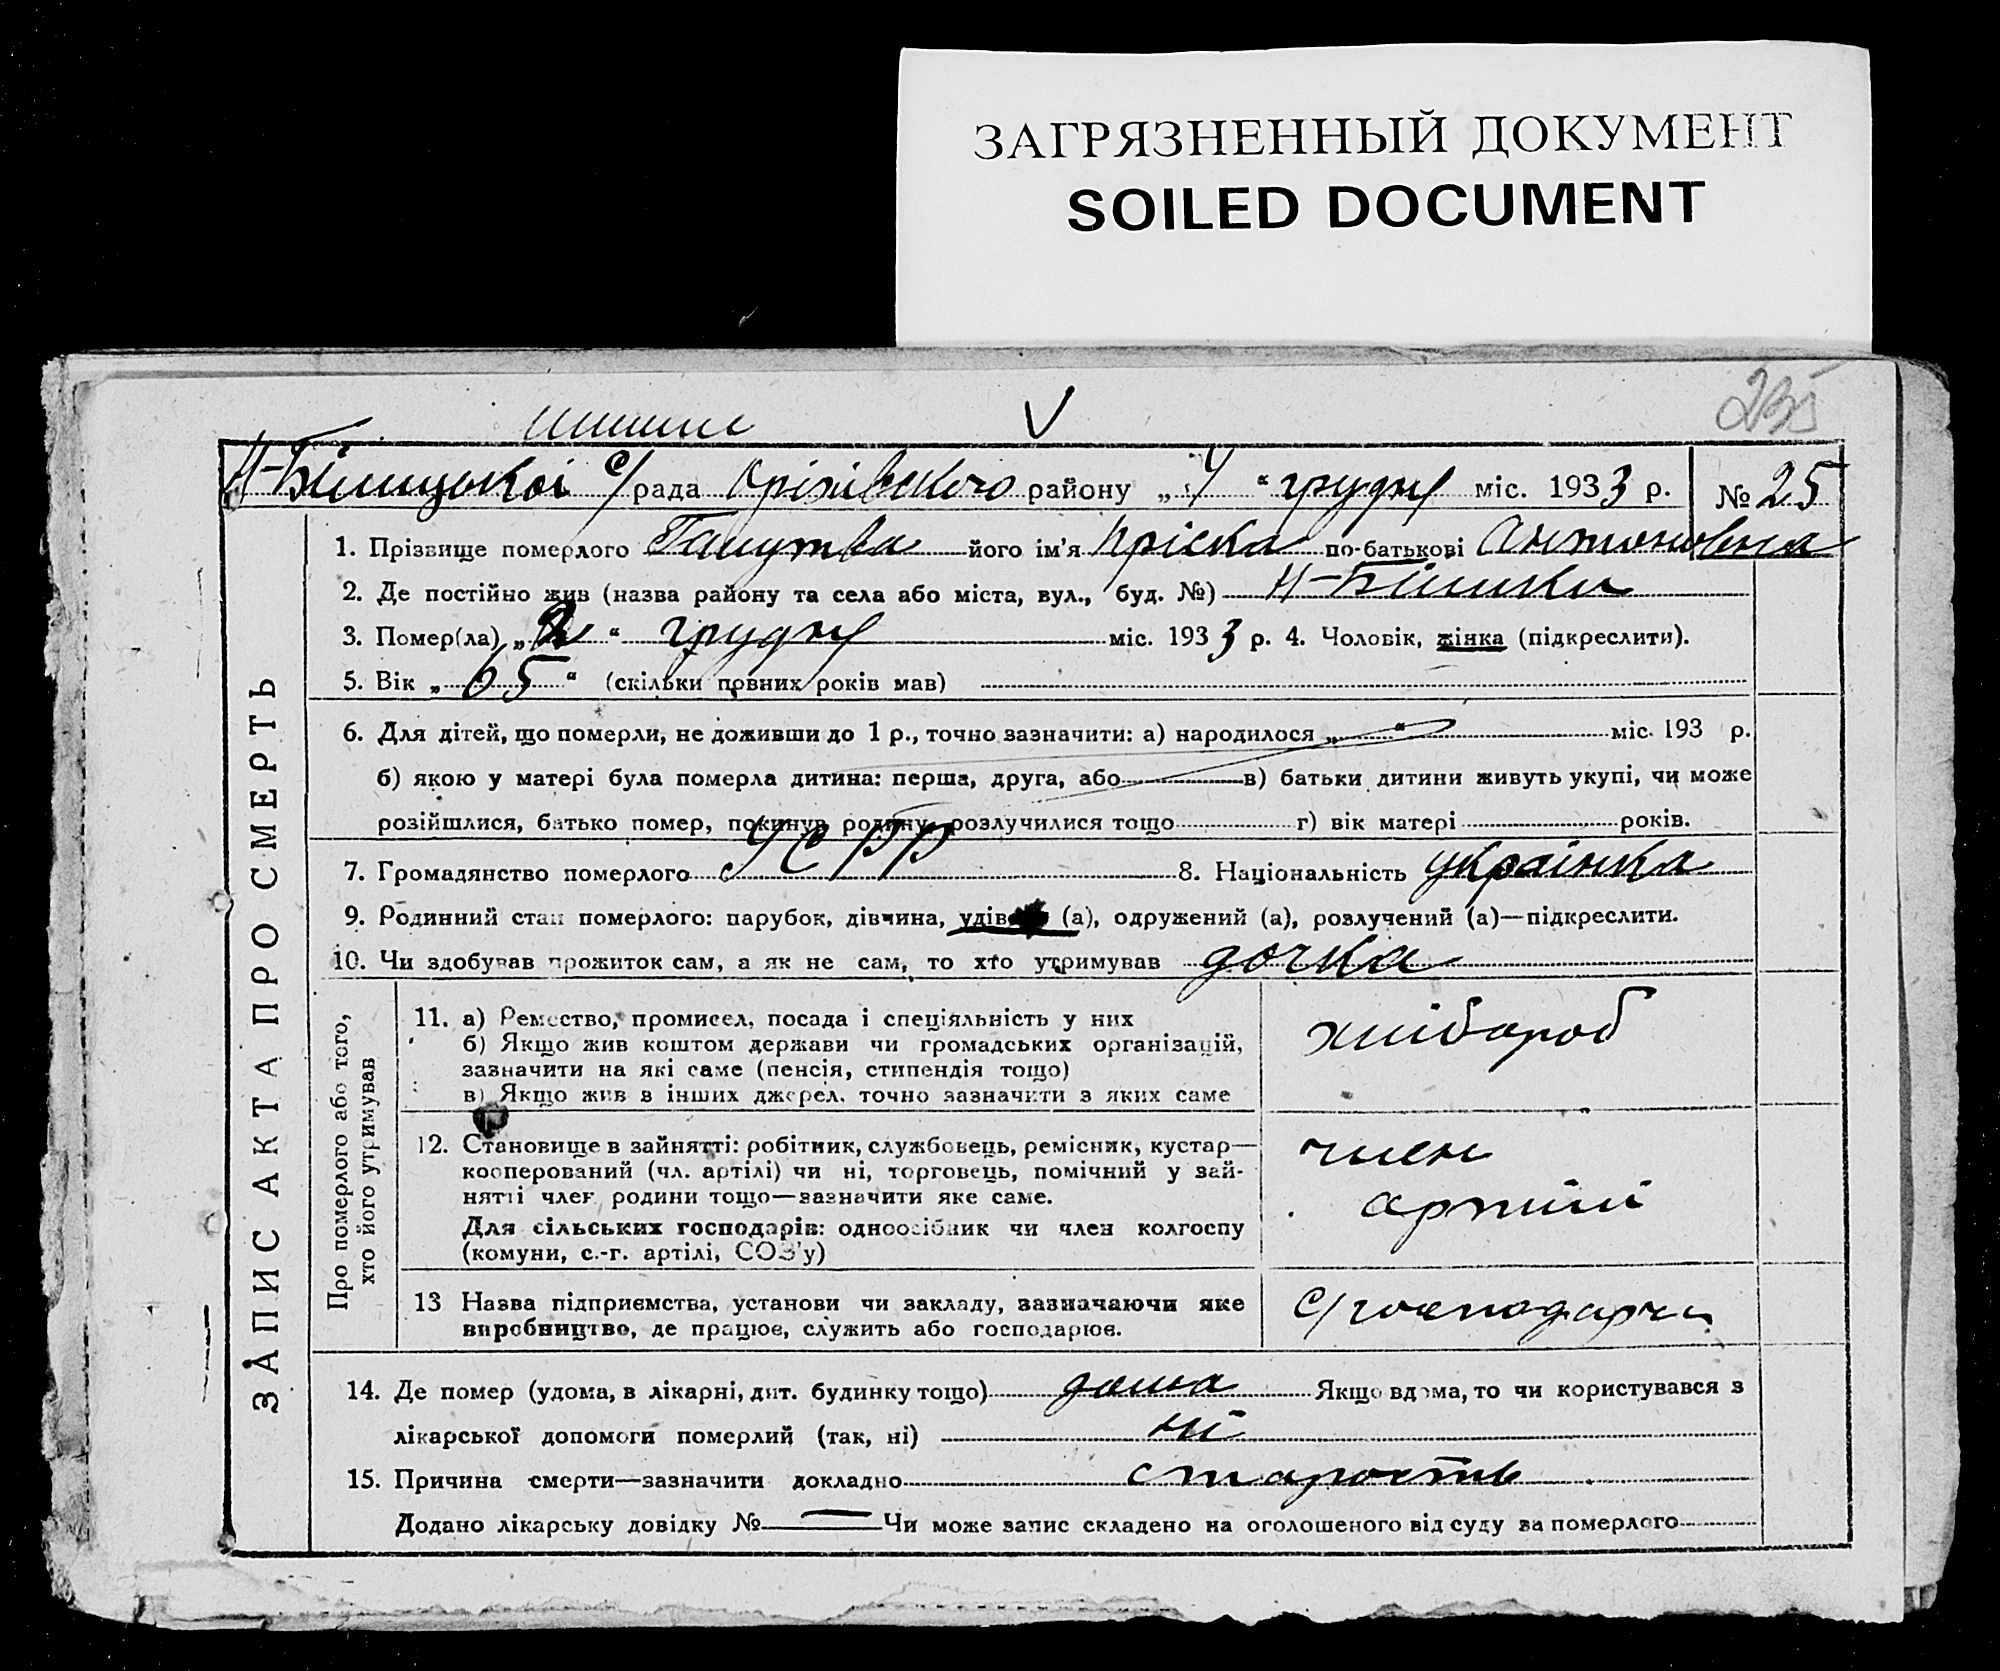 ЗАГРЯЗНЕННЫЙ ДОКУМЕНТ
SOILED DOCUMENT
235
Н-Білицької с/рада Оріхівського району „4“ грудня міс. 1933 р. № 25
ЗАПИС АКТА ПРО СМЕРТЬ
1. Прізвище померлого його ім'я Пріська по-батькові Антоновна
2. Де постійно жив (назва району та села або міста, вул., буд. №) Н-Білики
3. Помер(ла) „2“ грудня міс. 1933 р. 4. Чоловік, жінка (підкреслити).
5. Вік „65“ (скільки повних років мав)
6. Для дітей, що померли, не доживши до 1 р., точно зазначити: а) народилося „ “ міс. 193 р.
б) якою у матері була померла дитина: перша, друга, або в) батьки дитини живуть укупі, чи може
розійшлися, батько помер, покинув родину, розлучилися тощо г) вік матері років.
7. Громадянство померлого УСРР 8. Національність українка
9. Родинний стан померлого: парубок, дівчина, удівець (а), одружений (а), розлучений (а)—підкреслити.
10. Чи здобував прожиток сам, а як не сам, то хто утримував дочка
Про померлого або того,
хто його утримував
11. а) Ремество, промисел, посада і спеціяльність у них
б) Якщо жив коштом держави чи громадських організацій,
зазначити на які саме (пенсія, стипендія тощо)
в) Якщо жив з інших джерел, точно зазначити з яких саме
хлібороб
12. Становище в зайнятті: робітник, службовець, ремісник, кустар—
кооперований (чл. артілі) чи ні, торговець, помічний у зай-
нятті член родини тощо—зазначити яке саме.
Для сільських господарів: одноосібник чи член колгоспу
(комуни, с.-г. артілі, СОЗ'у)
член
артілі
13 Назва підприємства, установи чи закладу, зазначаючи яке
виробництво, де працює, служить або господарює.
с/господарчи
14. Де помер (удома, в лікарні, дит. будинку тощо) дома Якщо вдома, то чи користувався з
лікарської допомоги померлий (так, ні) ні
15. Причина смерти—зазначити докладно старость
Додано лікарську довідку № — Чи може запис складено на оголошеного від суду за померлого